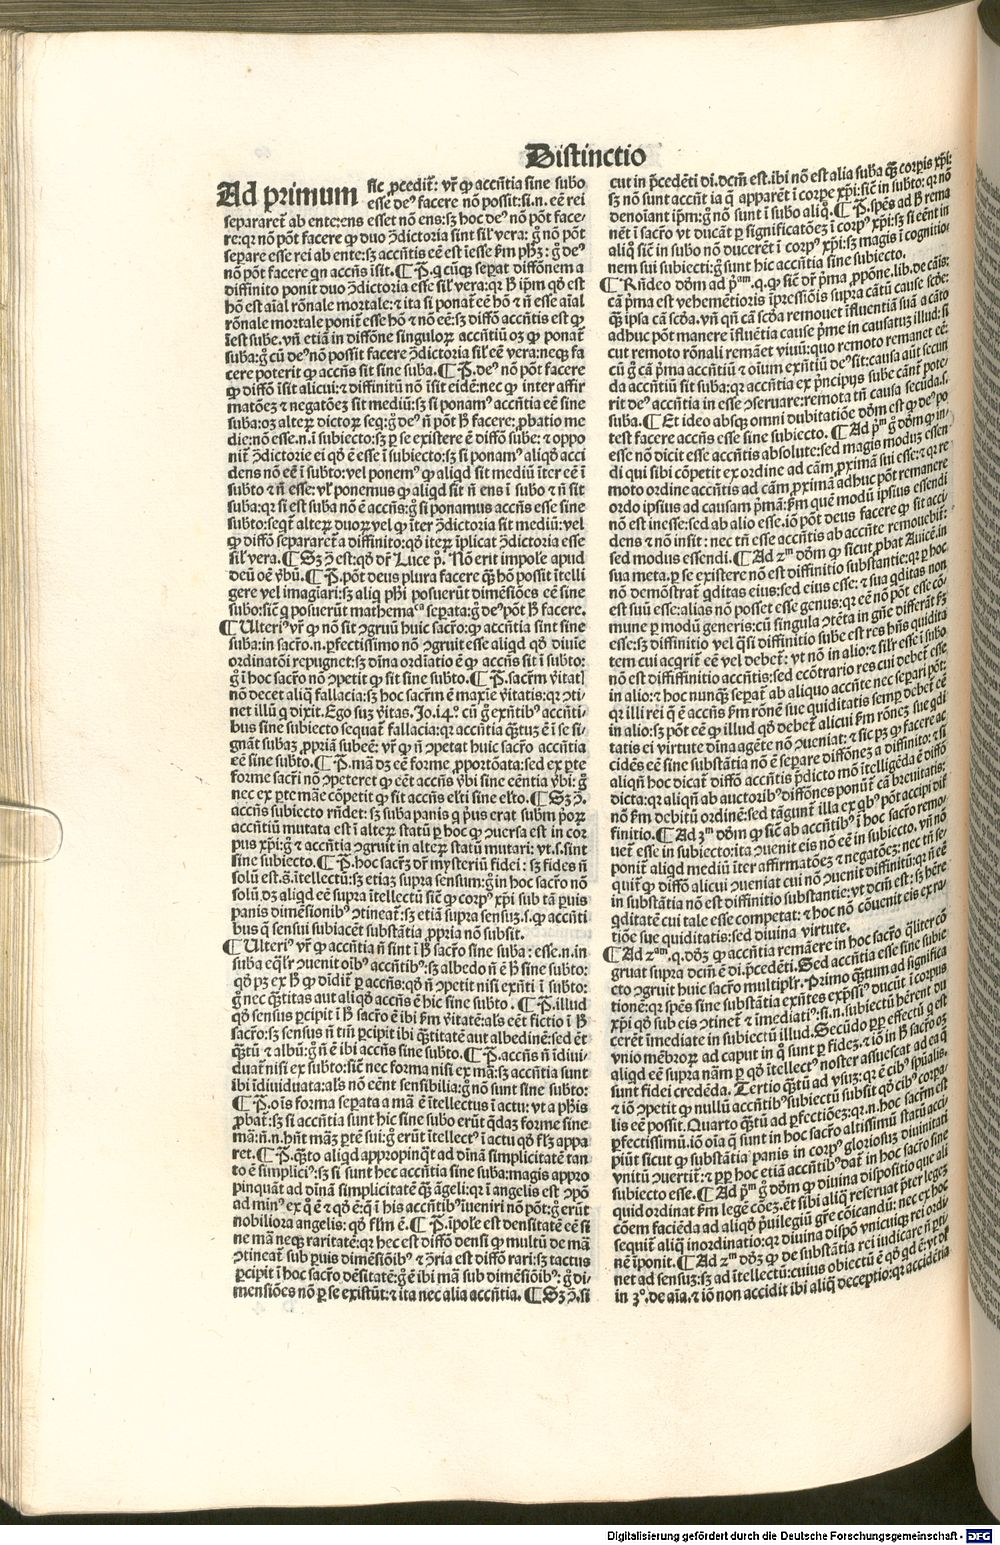 Distinctio
Ad primum sic ꝓcedit̃: vr̃ ꝙ accñtia sine subo
esse deꝰ facere nō possit: si.n. eē rei
separaret̃ ab ente: ens esset nō ens: sꝫ hoc deꝰ nō pōt face-
re: qr nō pōt facere ꝙ duo ɔ̄dictoria sint sił vera: g̃ nō pōt
separe esse rei ab ente: sꝫ accñtis eē est īesse ẜm ph̄ꝫ: g̃ deꝰ
nō pōt facere qn accñs īsit. ¶ P̃. q cūqꝫ seꝑat diffōnem a
diffinito ponit duo ɔ̄dictoria esse sił vera: qr B ip̄m qd est
hō est aīal rōnale mortale: ⁊ ita si ponat̃ eē hō ⁊ ñ esse aīal
rōnale mortale ponit̃ esse hō ⁊ nō eē: sꝫ diffō accñtis est ꝙ
īest sube. vñ etiā in diffōne singuloꝝ accñtiū oꝫ ꝙ ponat̃
suba: g̃ cū deꝰ nō possit facere ɔ̄dictoria sił eē vera: neqꝫ fa
cere poterit ꝙ accñs sit sine suba. ¶ P̃. deꝰ nō pōt facere
ꝙ diffō īsit alicui: ⁊ diffinitū nō īsit eidē: nec ꝙ inter affir
matōeꝫ ⁊ negatōeꝫ sit mediū: sꝫ si ponam̃ accñtia eē sine
suba: oꝫ alteꝝ dictoꝝ seq: g̃ deꝰ ñ pōt B facere. ꝓbatio me
die: nō esse.n. ī subiecto: sꝫ ꝑ se existere ē diffō sube: ⁊ oppo
nit̃ ɔ̄dictorie ei qd ē esse ī subiecto: sꝫ si ponam̃ aliqd acci
dens nō eē ī subto: vel ponem̃ ꝙ aliqd sit mediū īter eē ī
subto ⁊ ñ esse: vł ponemus ꝙ aliqd sit ñ ens ī subo ⁊ ñ sit
suba: qr si est suba nō ē accñs: g̃ si ponamus accñs esse sine
subto: seqt̃ alteꝝ duoꝝ vel ꝙ īter ɔ̄dictoria sit mediū: vel
ꝙ diffō separaret̃ a diffinito: qd iteꝝ īplicat ɔ̄dictoria esse
sił vera. ¶ Sꝫ ɔ̄ est: qd dr̃ Luce p̃. Nō erit impole apud
deū oē v̄bū. ¶ P̃. pōt deus plura facere q̄ꝫ hō possit ītelli
gere vel imagīari: sꝫ aliq ph̄i posuerūt dimēsiōes eē sine
subo: sic̃ q posuerūt mathema.ca seꝑata: g̃ deꝰ pōt B facere.
¶ Ulteriꝰ vr̃ ꝙ nō sit ɔgruū huic sacr̃o: ꝙ accñtia sint sine
suba: in sacr̃o.n. ꝑfectissimo nō ɔgruit esse aliqd qd diuīe
ordinatōi repugnet: sꝫ dīna ordīatio ē ꝙ accñs sit ī subto:
g̃ ī hoc sacr̃o nō ɔpetit ꝙ sit sine subto. ¶ P̃. sacr̃m v̄itat̃
nō decet aliq̄ fallacia: sꝫ hoc sacr̃m ē maxīe v̄itatis: qr ɔti-
net illū q dixit. Ego suꝫ v̄itas. Jo.14°. cū g̃ exñtibꝰ accñti-
bus sine subiecto sequat̃ fallacia: qr accñtia q̄ꝫtuꝫ ē ī se si-
gnāt subaꝫ ꝓpriā subeē: vr̃ ꝙ ñ ɔpetat huic sacr̃o accñtia
eē sine subto. ¶ P̃. mā dꝫ eē forme ꝓportōata: sed ex ꝑte
forme sacr̃i nō ɔpeteret ꝙ eēt accñs v̄bi sine eēntia v̄bi: g̃
nec ex ꝑte māe cōpetit ꝙ sit accñs elt̃i sine elt̃o. ¶ Sꝫ ɔ̄.
accñs subiecto rñdet: sꝫ suba panis q p̃us erat subm p̃oꝝ
accñtiū mutata est ī alteꝝ statū ꝑ hoc ꝙ ɔuersa est in cor
pus xp̄i: g̃ ⁊ accñtia ɔgruit in alteꝝ statū mutari: vt.s. sint
sine subiecto. ¶ P̃. hoc sacr̃ꝫ dr̃ mysteriū fidei: sꝫ fides ñ
solū est.s. ītellectū: sꝫ etiaꝫ supra sensum: g̃ in hoc sacr̃o nō
solū dꝫ aliqd eē supra ītellectū sic̃ ꝙ corpꝰ xp̄i sub tā ꝑuis
panis dimēsionibꝰ ɔtineat̃: sꝫ etiā supra sensuꝫ.s. ꝙ accñti
bus q̄ sensui subiacēt substātia ꝓpria nō subsit.
¶ Ulteriꝰ vr̃ ꝙ accñtia ñ sint ī B sacr̃o sine suba: esse.n. in
suba eqłr ɔuenit oībꝰ accñtibꝰ: sꝫ albedo ñ ē B sine subto:
qd pꝫ ex B ꝙ dīdit̃ ꝑ accñs: qd ñ ɔpetit nisi exñti ī subto:
g̃ nec q̄ꝫtitas aut aliqd accñs ē hic sine subto. ¶ P̃. illud
qd sensus ꝑcipit ī B sacr̃o ē ibi ẜm v̄itatē: als eēt fictio ī B
sacr̃o: sꝫ sensus ñ tm̃ ꝑcipit ibi q̄ꝫtitatē aut albedinē: sed ēt
q̄ꝫtū ⁊ albū: g̃ ñ ē ibi accñs sine subto. ¶ P̃. accñs ñ īdiui-
duat̃ nisi ex subto: sic̃ nec forma nisi ex mā: sꝫ accñtia sunt
ibi īdiuiduata: als nō eēnt sensibilia: g̃ nō sunt sine subto:
¶ P̃. oīs forma seꝑata a mā ē ītellectus ī actu: vt a ph̄is
ꝓbat̃: sꝫ si accñtia sunt hic sine subo erūt q̄daꝫ forme sine
mā: ñ.n. hñt māꝫ ꝑtē sui: g̃ erūt ītellectꝰ ī actu qd flꝫ appa
ret. ¶ P̃. q̄ꝫto aliqd appropinq̃t ad dīnā simplicitatē tan
to ē simpliciꝰ: sꝫ si sunt hec accñtia sine suba: magis appro
pinquāt ad dīnā simplicitatē q̄ꝫ āgeli: qr ī angelis est ɔpō
ad minꝰ ex q ē ⁊ qd ē: q̄ ī his accñtibꝰ īueniri nō pōt: g̃ erūt
nobiliora angelis: qd fłm ē. ¶ P̃. īpole est densitatē eē si
ne mā neqꝫ raritatē: qr hec est diffō densi ꝙ multū de mā
ɔtineat̃ sub ꝑuis dimēsiōibꝰ ⁊ ɔ̄ria est diffō rari: sꝫ tactus
ꝑcipit ī hoc sacr̃o dēsitatē: g̃ ē ibi mā sub dimēsiōibꝰ: g̃ di-
mensiōes nō ꝑ se existūt: ⁊ ita nec alia accñtia. ¶ Sꝫ ɔ̄. si
cut in p̃cedēti di. dcm̃ est. ibi nō est alia suba q̄ꝫ corpis xp̄i:
sꝫ nō sunt accñt ia q̄ apparēt ī corpe xp̄i: sic̃ in subto: qr nō
denoīant ip̄m: g̃ nō sunt ī subo aliq. ¶ P̃. spēs ad B rema
nēt ī sacr̃o vt ducāt ꝑ significatōeꝫ ī corpꝰ xp̄i: sꝫ si eēnt in
aliq sic̃ in subo nō ducerēt ī corpꝰ xp̄i: sꝫ magis ī cognitio-
nem sui subiecti: g̃ sunt hic accñtia sine subiecto.
¶ Rñdeo dōm ad p̃.am.q. ꝙ sic̃ dr̃ p̃ma ꝓpōne. lib. de cāis:
cā p̃ma est vehemētioris īpressiōis supra cātū cause scd̄e:
q̄ꝫ ip̄a cā scd̄a. vñ qñ cā scd̄a remouet īfluentiā suā a cāto
adhuc pōt manere īfluētia cause p̃me in causatuꝫ illud: si
cut remoto rōnali remāet viuū: quo remoto remanet eē:
cū g̃ cā p̃ma accñtiū ⁊ oīum exñtiū deꝰ sit: causa aūt secun
da accñtiū sit suba: qr accñtia ex p̃ncipijs sube cānt̃ pote-
rit deꝰ accñtia in esse ɔseruare: remota tñ causa secūda.s.
suba. ¶ Et ideo absqꝫ omni dubitatiōe dōm est ꝙ deꝰ po
test facere accñs esse sine subiecto. ¶ Ad p̃m g̃ dōm ꝙ in-
esse nō dicit esse accñtis absolute: sed magis moduꝫ essen
di qui sibi cōpetit ex ordine ad cām ꝓximā sui esse: ⁊ qr re
moto ordine accñtis ad cām ꝓximā adhuc pōt remanere
ordo ipsius ad causam p̃mā: ẜm quē modū ipsius essendi
nō est inesse: sed ab alio esse. iō pōt deus facere ꝙ sit acci
dens ⁊ nō insit: nec tñ esse accñtis ab accñte remouebit̃:
sed modus essendi. ¶ Ad 2m dōm ꝙ sicut ꝓbat Auicē. in
sua meta. ꝑ se existere nō est diffinitio substantie: qr ꝑ hoc
nō demōstrat̃ qditas eius: sed eius esse: ⁊ sua qditas non
est suū esse: alias nō posset esse genus: qr eē nō pōt esse cō-
mune ꝑ modū generis: cū singula ɔtēta in gñe differāt ẜm
esse: sꝫ diffinitio vel q̄si diffinitio sube est res hñs quidita
tem cui acqrit̃ eē vel debet̃: vt nō in alio: ⁊ siłr esse ī subo
nō est diffiffinitio accñtis: sed ecōtrario res cui debet̃ esse
in alio: ⁊ hoc nunq̄ꝫ seꝑat̃ ab aliquo accñte nec separi pōt:
qr illi rei q̄ ē accñs ẜm rōnē sue quiditatis semꝑ debet̃ eē
in alio: sꝫ pōt eē ꝙ illud qd debet̃ alicui ẜm rōneꝫ sue qdi
tatis ei virtute dīna agēte nō ɔueniat: ⁊ sic pꝫ ꝙ facere ac
cidēs eē sine substātia nō ē seꝑare diffōneꝫ a diffinito: ⁊ si
aliqñ hoc dicat̃ diffō accñtis p̃dicto mō ītelligēda ē diffō
dicta: qr aliqñ ab auctoribꝰ diffōnes ponūt̃ cā breuitatis:
nō ẜm debitū ordinē: sed tāgunt̃ illa ex qbꝰ pōt accipi dif
finitio. ¶ Ad 3m dōm ꝙ sic̃ ab accñtibꝰ ī hoc sacr̃o remo-
uet̃ esse in subiecto: ita ɔuenit eis nō eē in subiecto. vñ nō
ponit̃ aliqd mediū īter affirmatōeꝫ ⁊ negatōeꝫ: nec tñ se-
quit̃ ꝙ diffō alicui ɔueniat cui nō ɔuenit diffinitū: qr ñ eē
in substātia nō est diffinitio substantie: vt dcm̃ est: sꝫ hēre
qditatē cui tale esse competat: ⁊ hoc nō cōuenit eis ex ra-
tiōe sue quiditatis: sed diuina virtute.
¶ Ad 2am.q. dōꝫ ꝙ accñtia remāere in hoc sacr̃o qłiter cō
gruat supra dcm̃ ē di. p̃cedēti. Sed accñtia esse sine subie
cto ɔgruit huic sacr̃o multiplr̃. Primo q̄ꝫtum ad significa
tionē: qr spēs sine substātia exñtes exp̃siꝰ ducūt ī corpus
xp̄i qd sub eis ɔtinet̃ ⁊ īmediatiꝰ: si.n. subiectū hērent du
cerēt īmediate in subiectū illud. Secūdo ꝑꝑ effectū q est
vnio mēbroꝝ ad caput in q sunt ꝑ fideꝫ. ⁊ iō in B sacr̃o oꝫ
aliqd eē supra nām ꝑ qd ītellectꝰ noster assuescat ad ea q̄
sunt fidei credēda. Tertio q̄ꝫtū ad vsuꝫ: qr ē cibꝰ sp̄ialis.
⁊ iō ɔpetit ꝙ nullū accñtibꝰ subiectū subsit qd cibꝰ corpa-
lis eē possit. Quarto q̄ꝫtū ad ꝑfectiōeꝫ: qr.n. hoc sacr̃m est
ꝑfectissimū. iō oīa q̄ sunt in hoc sacr̃o altissimū statū acci
piūt sicut ꝙ substātia panis in corpꝰ gloriosuꝫ diuinitati
vnitū ɔuertit̃: ⁊ ꝑꝑ hoc etiā accñtibꝰ dat̃ in hoc sacr̃o sine
subiecto esse. ¶ Ad p̃m g̃ dōm ꝙ diuina dispositio que ali
quid ordinat ẜm legē cōeꝫ. ēt sibi aliq̄ reseruat p̃ter legeꝫ
cōem faciēda ad aliqd p̃uilegiū gr̃e cōicandū: nec ex hoc
sequit̃ aliq̄ inordinatio: qr diuina dispō vnicuiqꝫ rei ordi
nē īponit. ¶ Ad 2m dōꝫ ꝙ de substātia rei iudicare ñ ꝑti-
net ad sensuꝫ: sꝫ ad ītellectū: cuius obiectū ē qd qd ē: vt dr̃
in 3°. de aīa. ⁊ iō non accidit ibi aliq̄ deceptio: qr accidētia
Digitalisierung gefördert durch die Deutsche Forschungsgemeinschaft - DFG